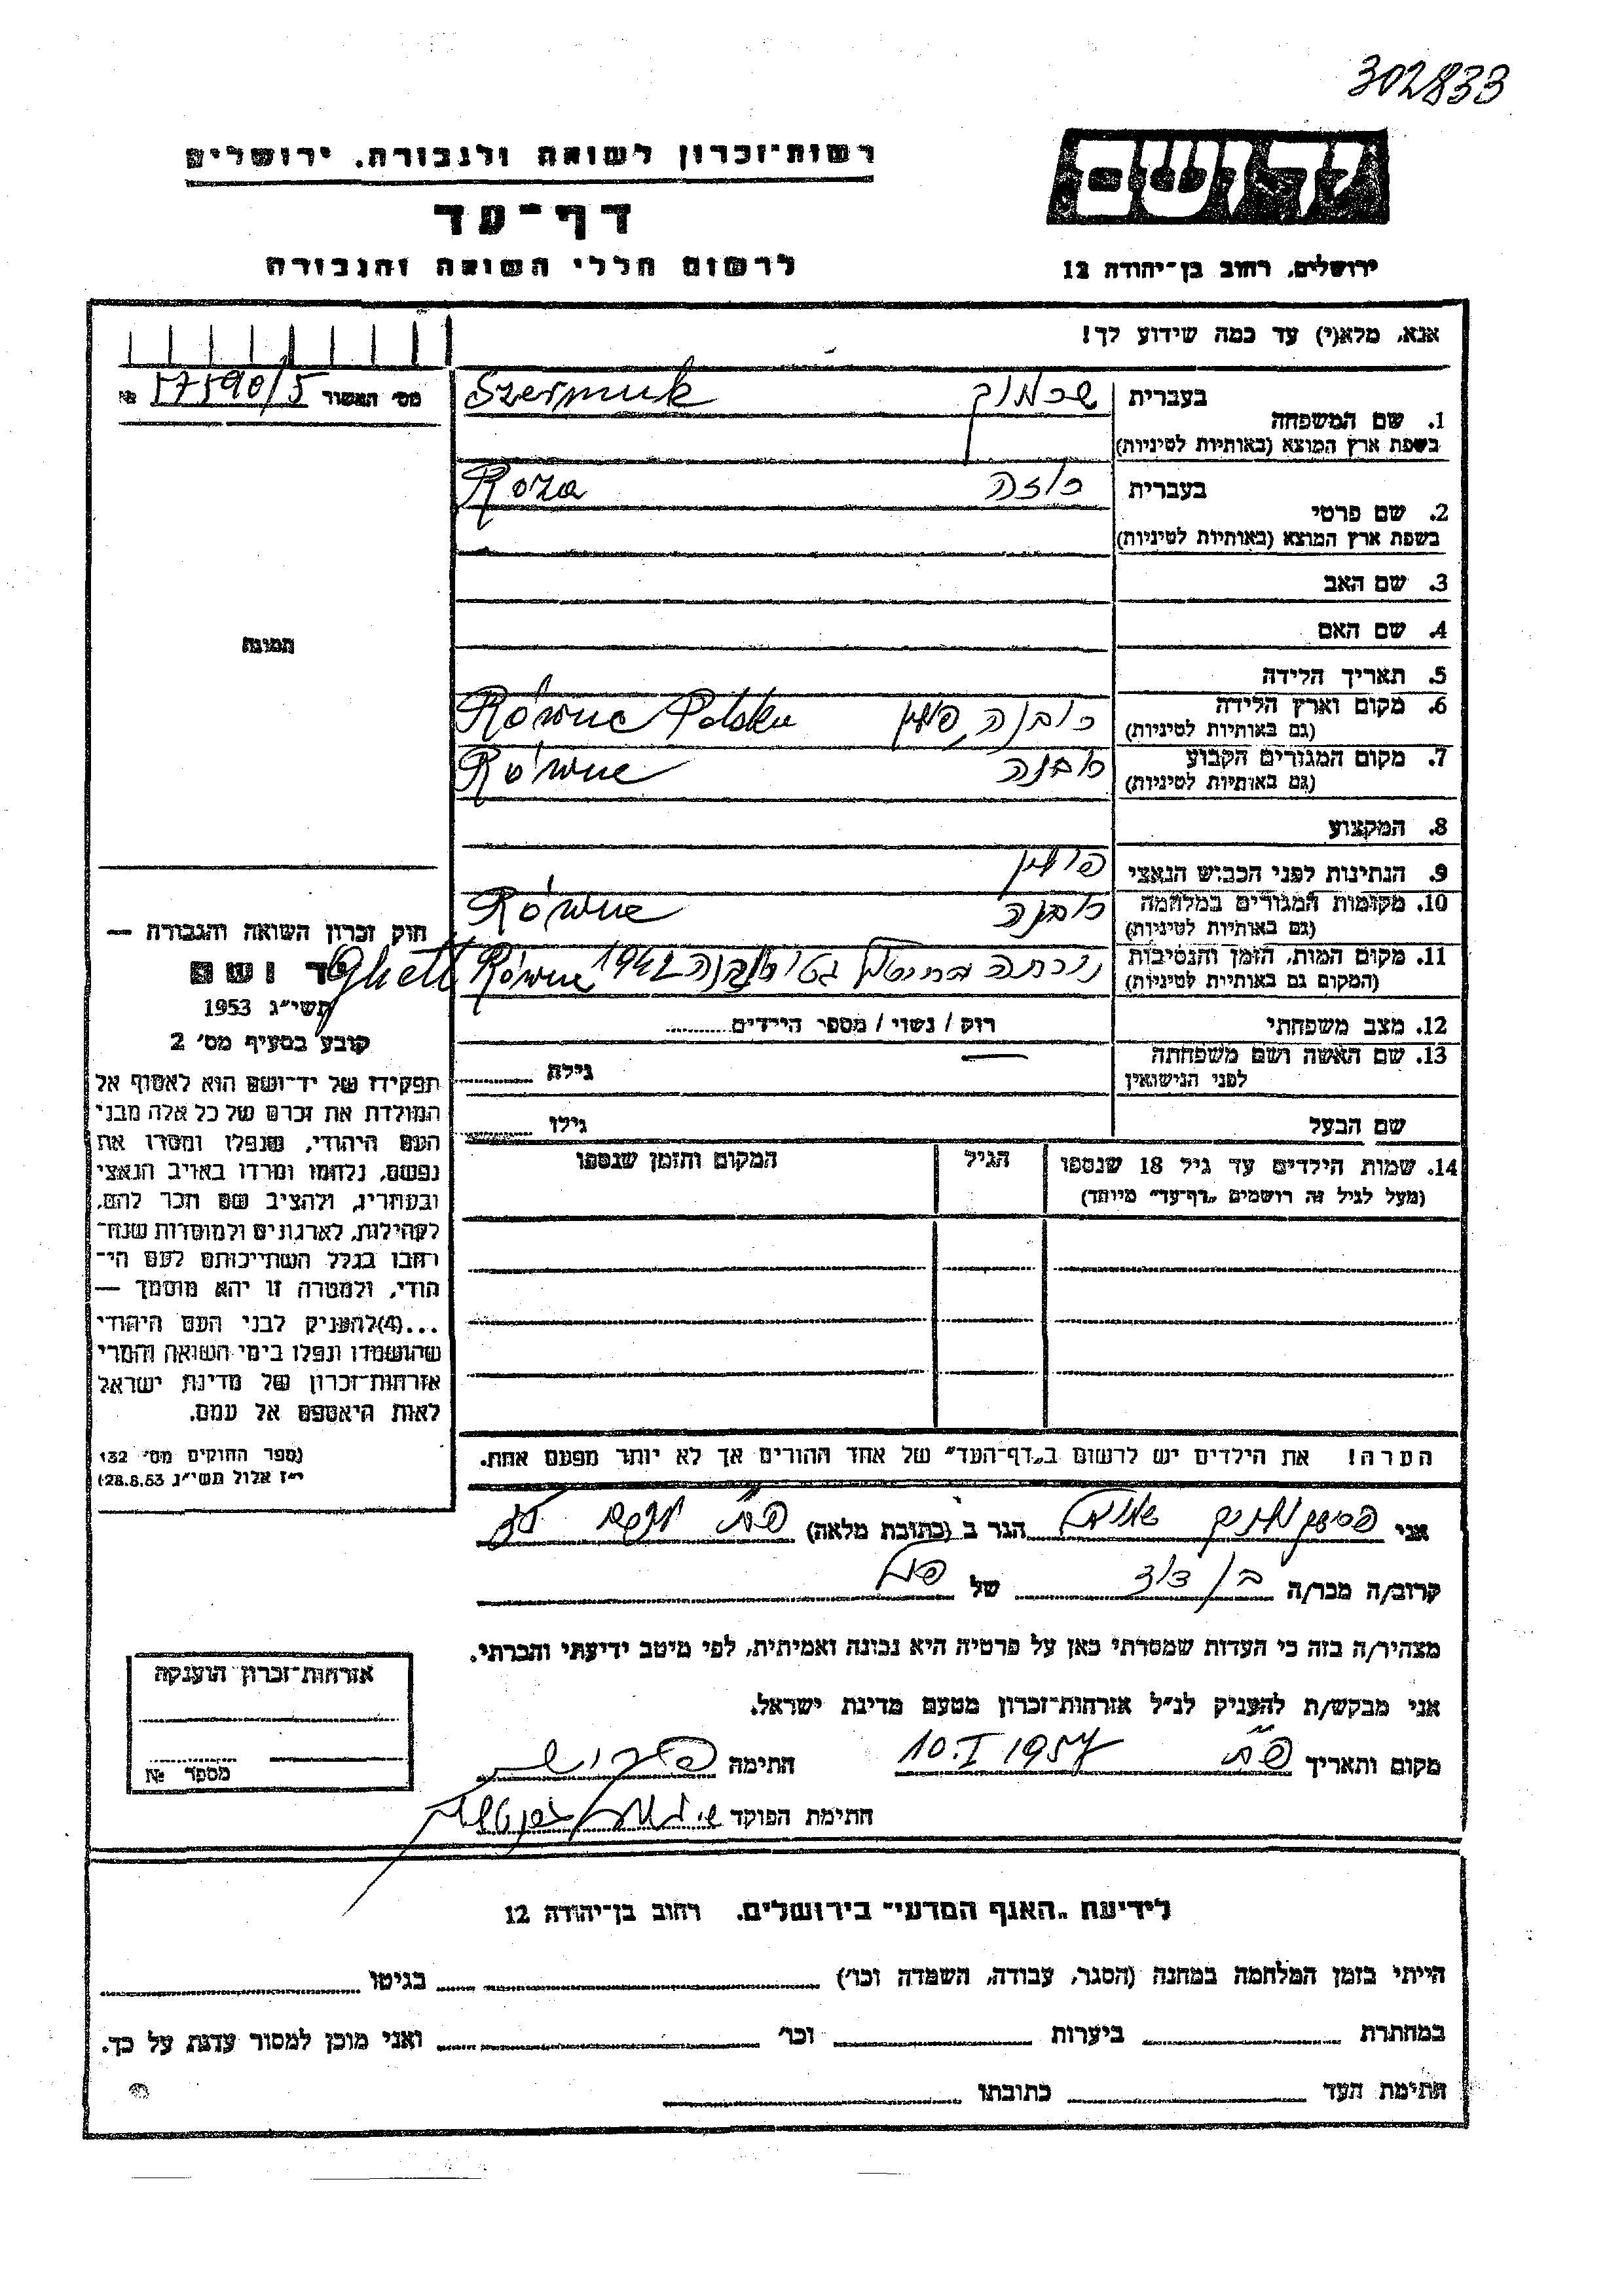 302833
ידושם
רשות־זכרון לשואה ולגבורה. ירושלים
דף־עד
לרשום חללי השואה והגבורה
ירושלים, רחוב בן־יהודה 12
אנא, מלא(י) עד כמה שידוע לך!
מס׳ האשור 17590/5 №
בעברית שרמוק Szermuk
1. שם המשפחה
בשפת ארץ המוצא (באותיות לטיניות)
בעברית רוזה Roza
2. שם פרטי
בשפת ארץ המוצא (באותיות לטיניות)
3. שם האב
4. שם האם
תמונה
5. תאריך הלידה
6. מקום וארץ הלידה רובנה, פולין Równe Polska
(גם באותיות לטיניות)
7. מקום המגורים הקבוע רובנה Równe
(גם באותיות לטיניות)
8. המקצוע
9. הנתינות לפני הכבוש הנאצי פולין
10. מקומות המגורים במלחמה רובנה Równe
(גם באותיות לטיניות)
11. מקום המות, הזמן והנסיבות בחיסול גטו רובנה 1942 Równe Ghett
(המקום גם באותיות לטיניות)
12. מצב משפחתי רוק / נשוי / מספר הילדים
13. שם האשה ושם משפחתה גילה
לפני הנישואין
שם הבעל גילו
14. שמות הילדים עד גיל 18 שנספו הגיל המקום והזמן שנספו
(מעל לגיל זה רושמים „דף־עד״ מיוחד)
הערה! את הילדים יש לרשום ב„דף־העד״ של אחד ההורים אך לא יותר מפעם אחת.
חוק זכרון השואה והגבורה —
יד ושם
תשי״ג 1953
קובע בסעיף מס׳ 2
תפקידו של יד־ושם הוא לאסוף אל
המולדת את זכרם של כל אלה מבני
העם היהודי, שנפלו ומסרו את
נפשם, נלחמו ומרדו באויב הנאצי
ובעוזריו, ולהציב שם וזכר להם,
לקהילות, לארגונים ולמוסדות שנח־
רבו בגלל השתייכותם לעם הי־
הודי, ולמטרה זו יהא מוסמך —
...(4)להעניק לבני העם היהודי
שהושמדו ונפלו בימי השואה והמרי
אזרחות־זכרון של מדינת ישראל
לאות היאספם אל עמם.
(ספר החוקים מס׳ 132
י״ז אלול תשי״ג 28.8.53)
אני שמואל הגר ב (כתובת מלאה)
קרוב/ה מכר/ה בן דוד של
מצהיר/ה בזה כי העדות שמסרתי כאן על פרטיה היא נכונה ואמיתית, לפי מיטב ידיעתי והכרתי.
אני מבקש/ת להעניק לנ״ל אזרחות־זכרון מטעם מדינת ישראל.
מקום ותאריך 10.I 1957 חתימה
חתימת הפוקד
אזרחות־זכרון הוענקה
מספר №
לידיעת „האגף המדעי״ בירושלים. רחוב בן־יהודה 12
הייתי בזמן המלחמה במחנה (הסגר, עבודה, השמדה וכו׳) בגיטו
במחתרת ביערות וכו׳ ואני מוכן למסור עדות על כך.
חתימת העד כתובתו